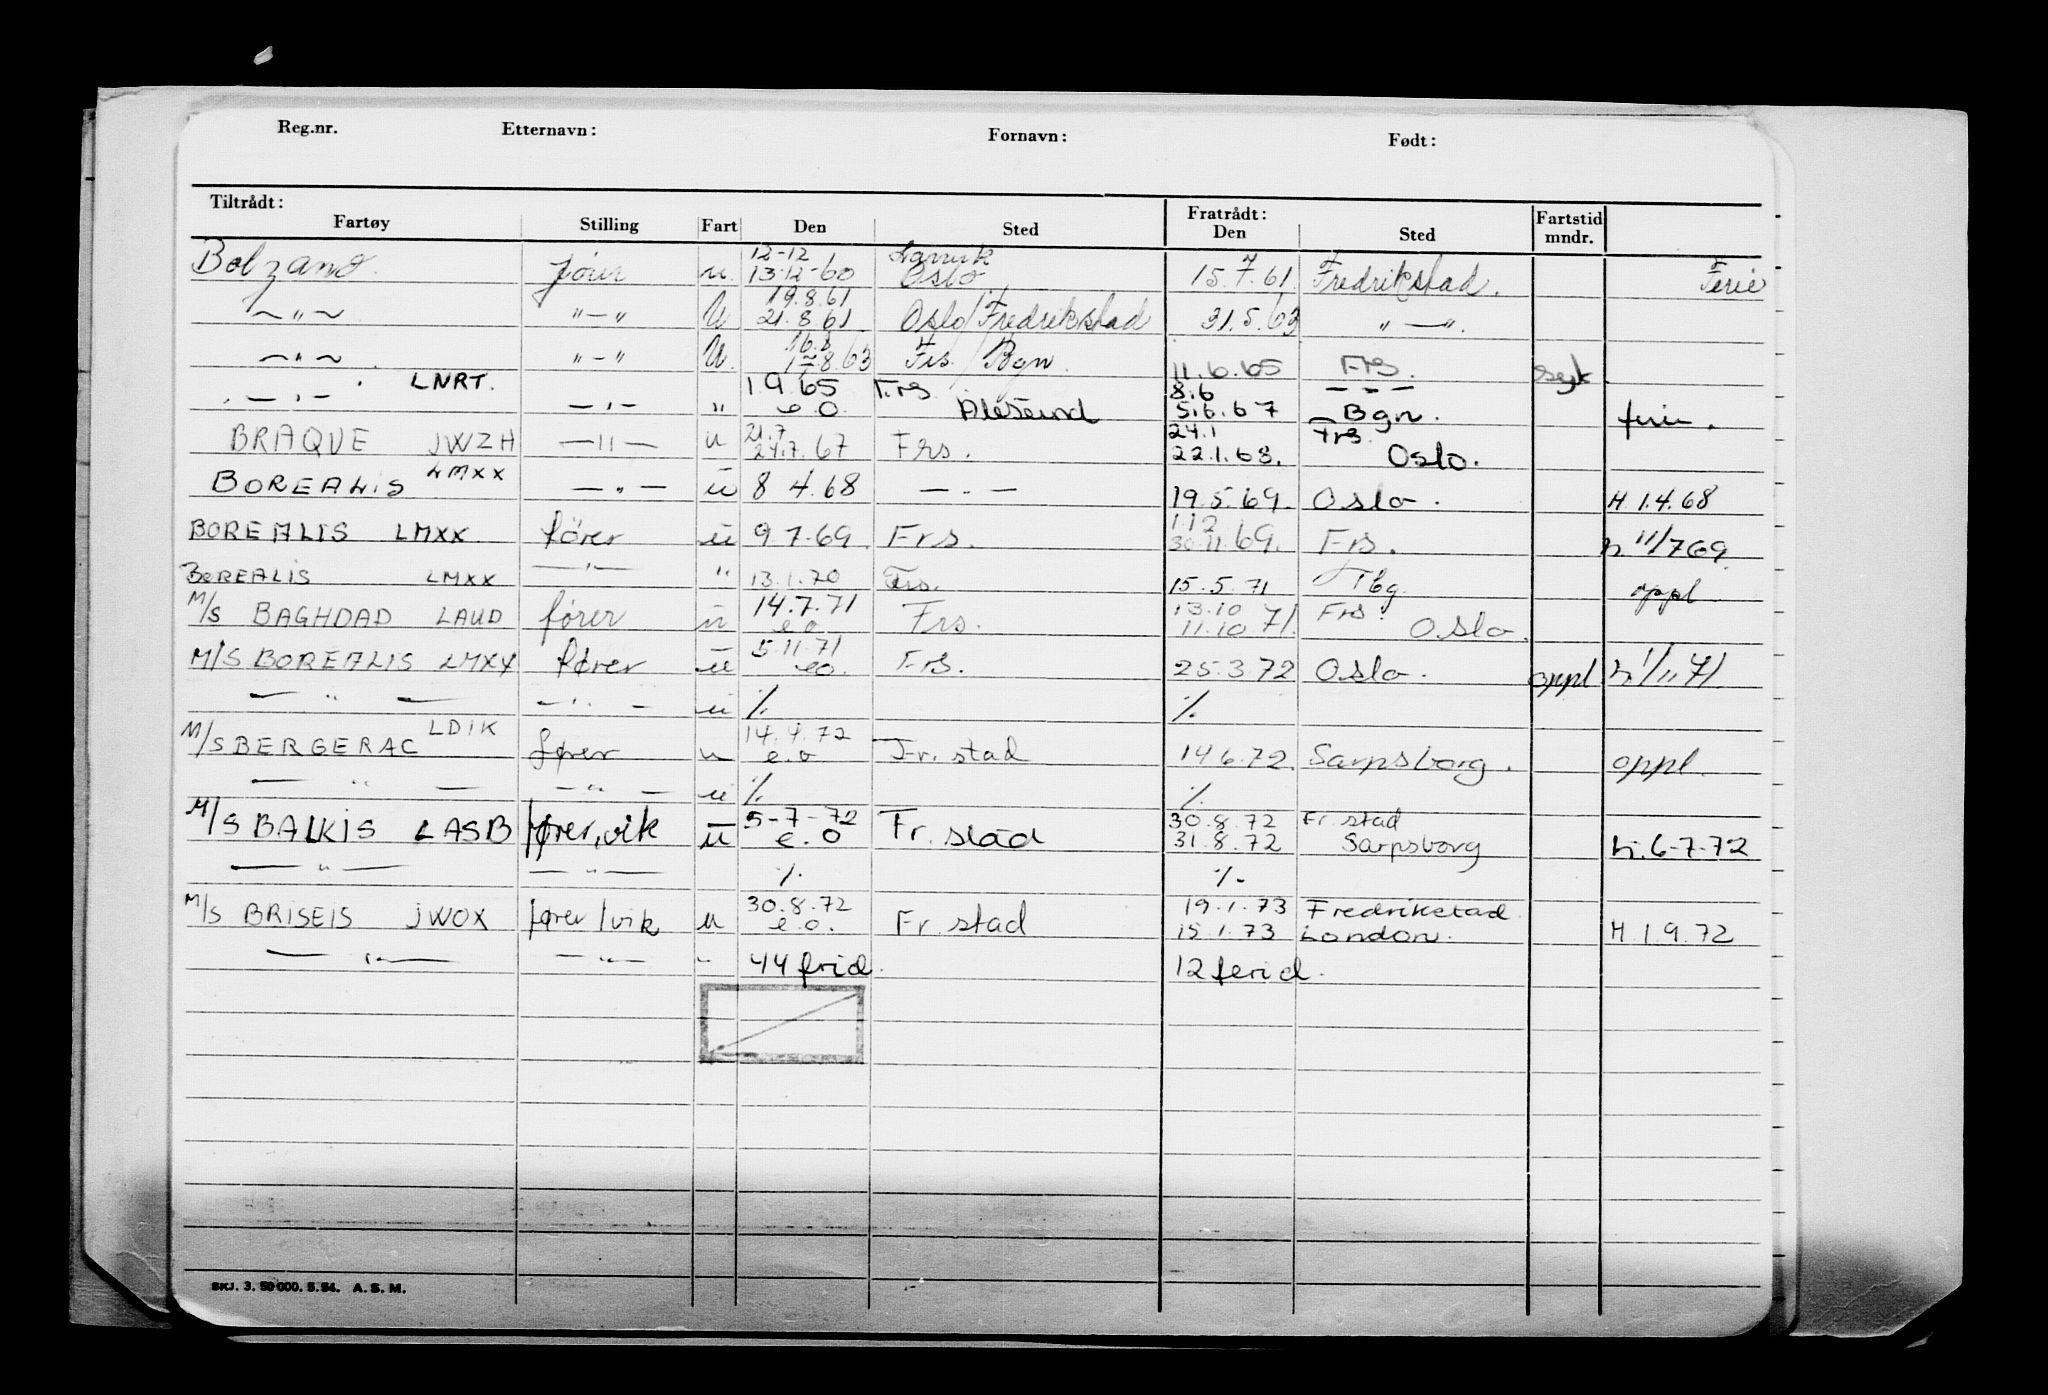 Reg.nr. Etternavn: Fornavn: Født:
Tiltrådt: Fratrådt:
Fartøy Stilling Fart Den Sted Den Sted Fartstid mndr.
12-12 Larvik
Bolzano fører u. 13-12-60 Oslo 15.7.61. Fredrikstad. Ferie
19.8.61
— " — " — " U 21.8.61 Oslo/Fredrikstad 31.5.63 " — ".
16.8
— " — " — " U. 63 Frs. / Bgn. 11.6.65 Frs. syk
LNRT. 1.9.65 Frs. 8.6 — - —
— " — — " — " e.o. Ålesund 5.6.67 Bgn. ferie.
21.7 24.1 Frs.
BRAQUE JWZH — " — u 24.7.67 Frs. 22.1.68. Oslo.
BOREALIS LMXX — " — u 8 4.68 — " — 19.5.69. Oslo. H 1.4.68
1.12
BOREALIS LMXX fører u 9.7.69. Frs. 30.11.69. Frs. h 11/7 69
BOREALIS LMXX — " — " 13.1.70 Frs. 15.5.71 Tbg. oppl
14.7.71 13.10 Frs.
M/S BAGHDAD LAUD fører u e.o Frs. 11.10.71. Oslo.
5.11.71
M/S BOREALIS LMXX fører u eo. Frs. 25.3.72 Oslo. oppl h. 1/11 71
— " — — " — u % %
14.4.72
M/S BERGERAC LDIK fører u e.o Fr.stad 14.6.72. Sarpsborg. oppl.
— " — — " — u % %
5-7-72 30.8.72 Fr.stad
M/S BALKIS LASB fører, vik u e.o Fr.stad 31.8.72 Sarpsborg h. 6-7-72
— " — — " — % %
30.8.72 19.1.73 Fredrikstad
M/S BRISEIS JWOX fører/vik u e.o. Fr.stad 15.1.73 London. H.1.9.72
— " — — " — " 44 frid. 12 ferid.
SKJ. 3. 50 000. 5.54. A. S. M.